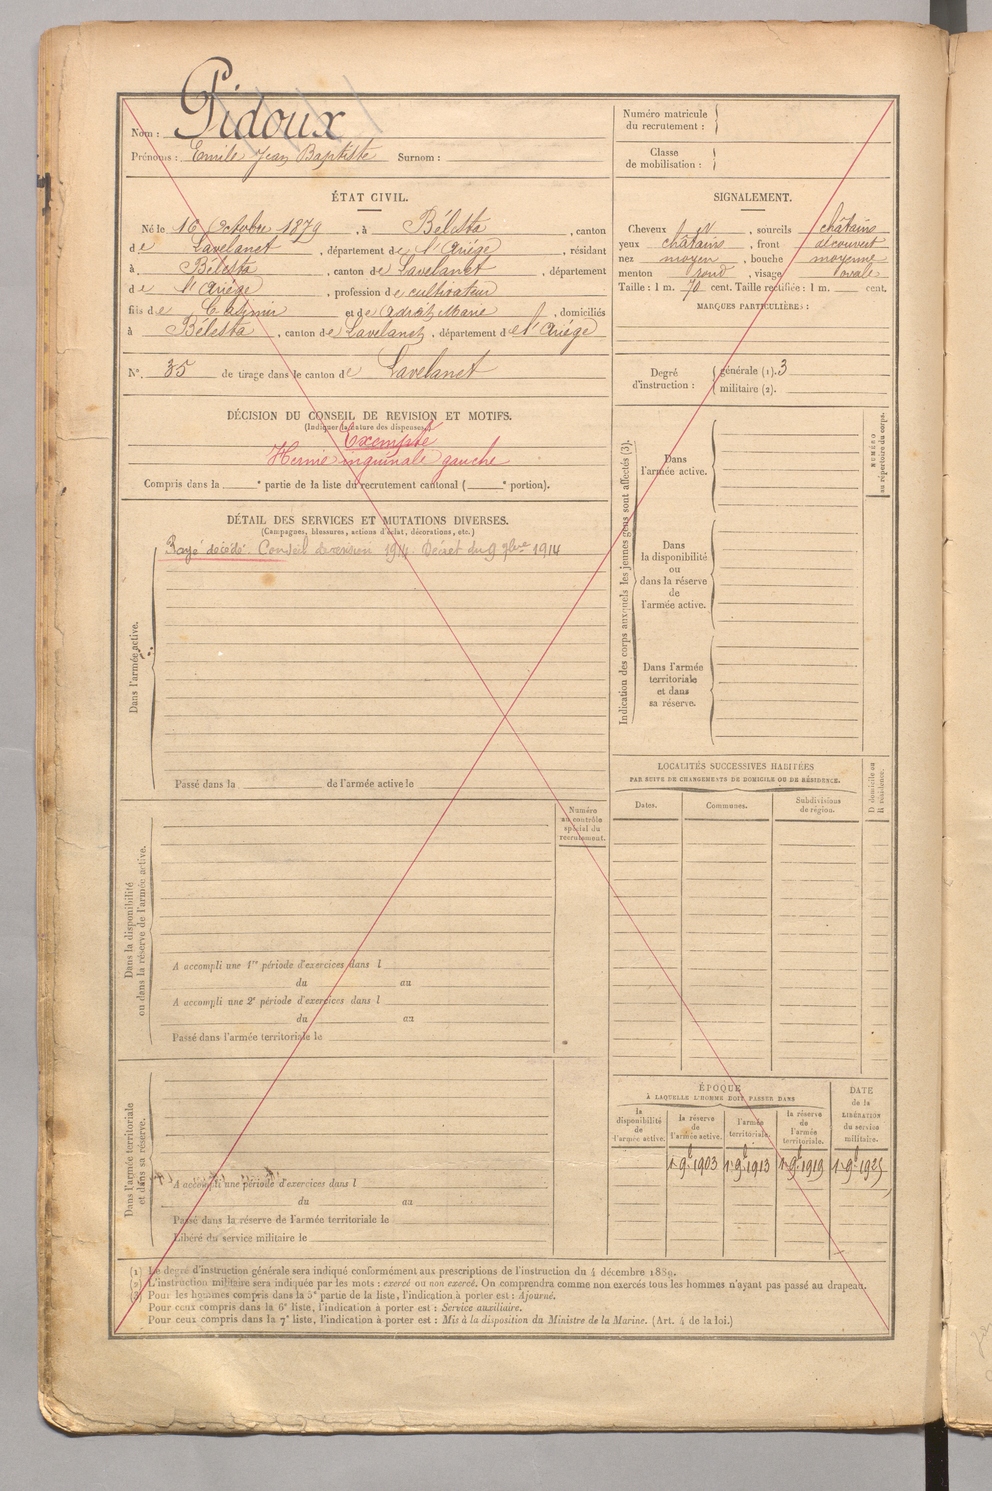 Pidoux
Nom :
Prénoms : Emile Jean Baptiste Surnom :
Numéro matricule
du recrutement :
Classe
de mobilisation :
ÉTAT CIVIL.
Né le 16 Octobre 1879, à Bélesta, canton
de Lavelanet, département de l'Ariége, résidant
à Bélesta, canton de Lavelanet, département
de l'Ariége, profession de cultivateur
fils de Casimir et de Adrait Marie, domiciliés
à Bélesta, canton de Lavelanet, département de l'Ariége
N°. 35 de tirage dans le canton de Lavelanet
SIGNALEMENT.
Cheveux et, sourcils châtains
yeux châtains, front découvert
nez moyen, bouche moyenne
menton rond, visage ovale
Taille : 1 m. 70 cent. Taille rectifiée : 1 m. cent.
MARQUES PARTICULIÈRES :
Degré
d'instruction :
générale (1). 3
militaire (2).
DÉCISION DU CONSEIL DE REVISION ET MOTIFS.
(Indiquer la nature des dispenses.)
Exempté
Hernie inguinale gauche
Compris dans la e partie de la liste du recrutement cantonal ( e portion).
DÉTAIL DES SERVICES ET MUTATIONS DIVERSES.
(Campagnes, blessures, actions d'éclat, décorations, etc.)
Rayé décédé. Conseil de révision 1914. Décret du 9 7bre 1914
Dans l'armée active.
Passé dans la de l'armée active le
Indication des corps auxquels les jeunes gens sont affectés (3).
Dans
l'armée active.
Dans
la disponibilité
ou
dans la réserve
de
l'armée active.
Dans l'armée
territoriale
et dans
sa réserve.
NUMÉRO
au répertoire du corps.
LOCALITÉS SUCCESSIVES HABITÉES
PAR SUITE DE CHANGEMENTS DE DOMICILE OU DE RÉSIDENCE.
Dates.
Communes.
Subdivisions
de région.
D domicile ou
R résidence.
Numéro
au contrôle
spécial du
recrutement.
Dans la disponibilité
ou dans la réserve de l'armée active.
A accompli une 1re période d'exercices dans l
du au
A accompli une 2e période d'exercices dans l
du au
Passé dans l'armée territoriale le
Dans l'armée territoriale
et dans sa réserve.
A accompli une période d'exercices dans l
du au
Passé dans la réserve de l'armée territoriale le
Libéré du service militaire le
ÉPOQUE
À LAQUELLE L'HOMME DOIT PASSER DANS
la
disponibilité
de
l'armée active.
la réserve
de
l'armée active.
l'armée
territoriale.
la réserve
de
l'armée
territoriale.
DATE
de la
LIBÉRATION
du service
militaire.
1 9e 1903 1 9e 1913 1 9e 1919 1 9e 1925
(1) Le degré d'instruction générale sera indiqué conformément aux prescriptions de l'instruction du 4 décembre 1889.
(2) L'instruction militaire sera indiquée par les mots : exercé ou non exercé. On comprendra comme non exercés tous les hommes n'ayant pas passé au drapeau.
(3) Pour les hommes compris dans la 5e partie de la liste, l'indication à porter est : Ajourné.
Pour ceux compris dans la 6e liste, l'indication à porter est : Service auxiliaire.
Pour ceux compris dans la 7e liste, l'indication à porter est : Mis à la disposition du Ministre de la Marine. (Art. 4 de la loi.)